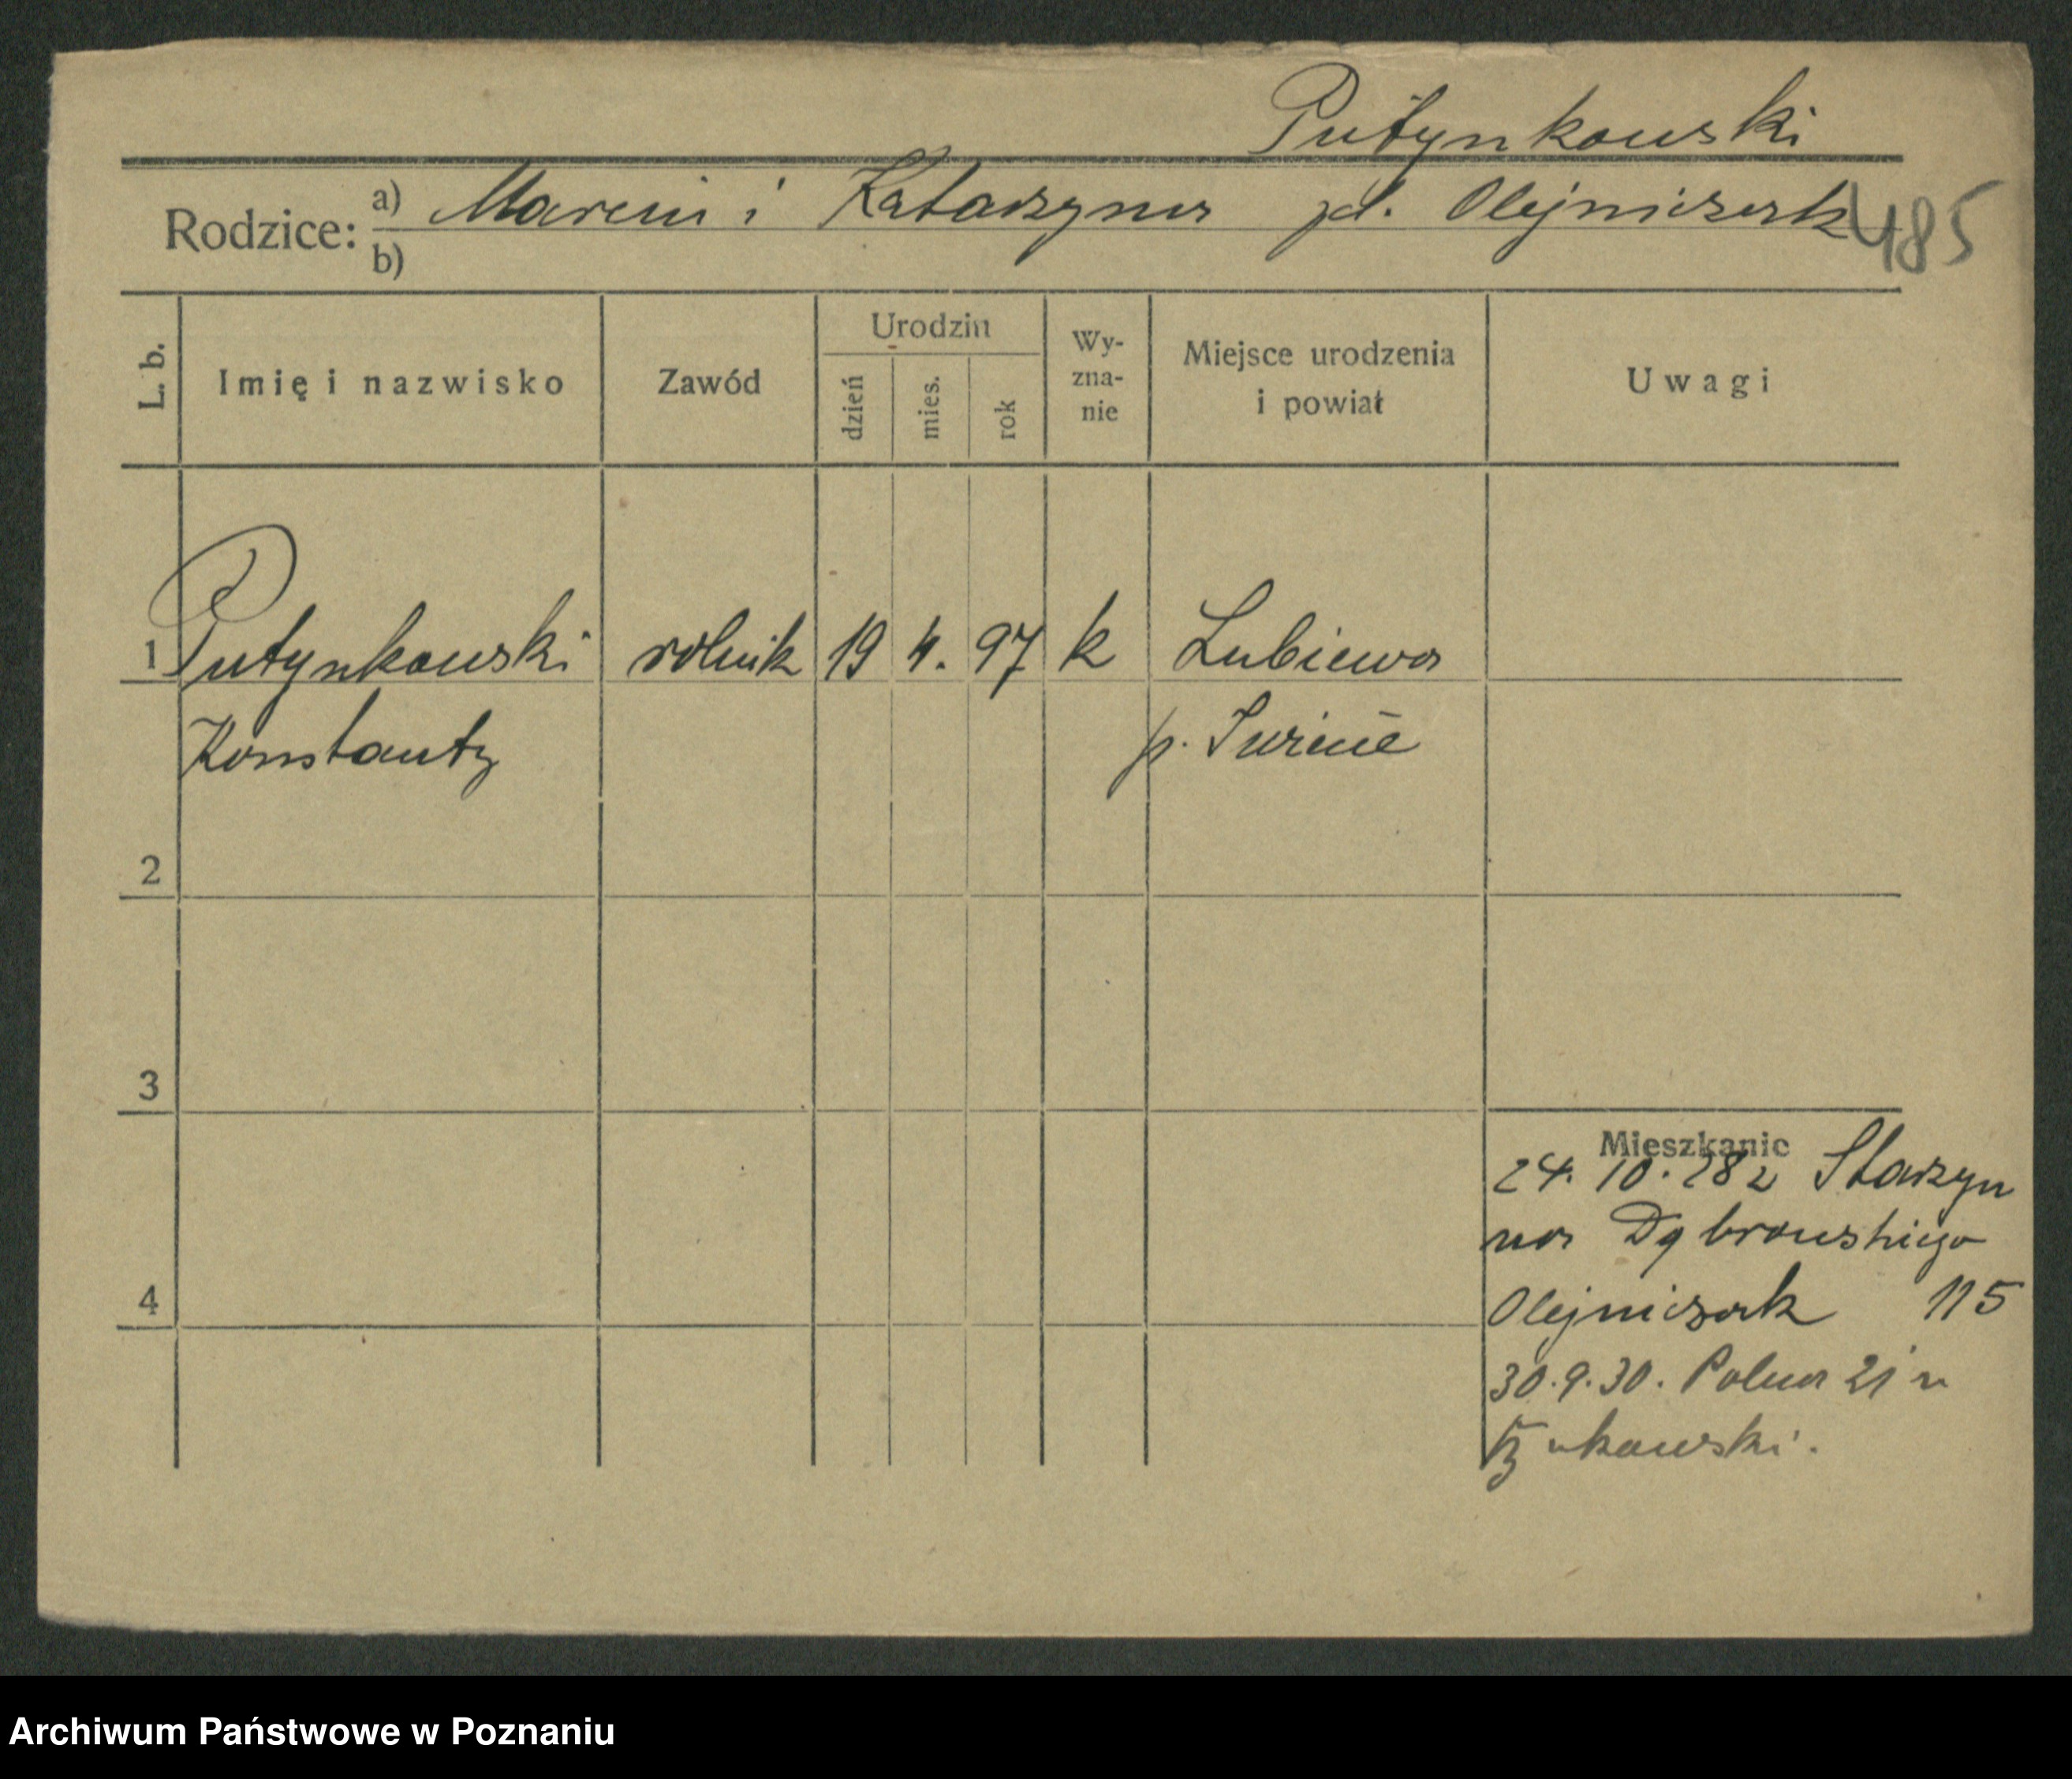 Putynkowski
Rodzice: a) Marcin i Katarzyna zd. Olejniczak 485
b)
L. b. Imię i nazwisko Zawód Urodzin dzień mies. rok Wy-zna-nie Miejsce urodzenia i powiat Uwagi
1 Putynkowski rolnik 19 4. 97 k Lubiewa
Konstanty p. Świecie
2
3
Mieszkanie
24. 10. 28 z Starzyn
na Dąbrowskiego
4 Olejniczak 115
30.9.30. Polna 21 u
Archiwum Państwowe w Poznaniu